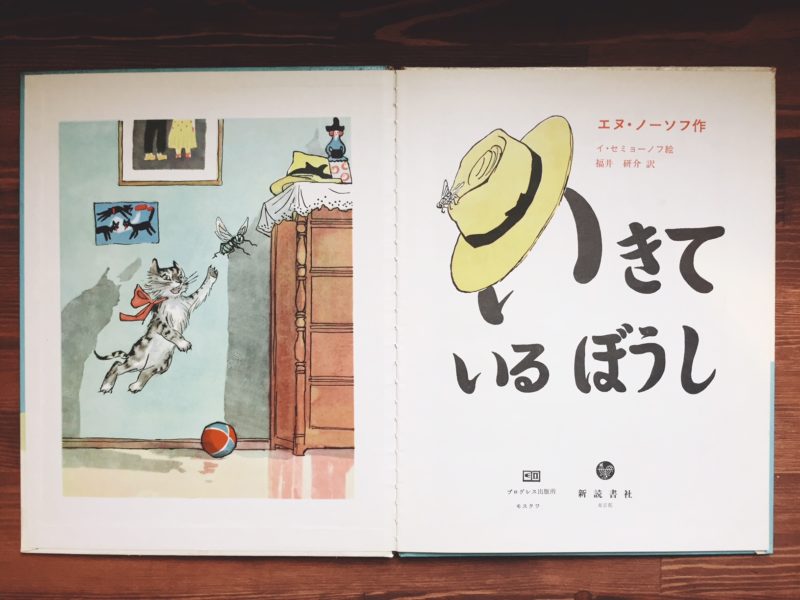 エヌ・ノーソフ作
イ・セミョーノフ絵
福井 研介 訳
いきて
いる ぼうし
プログレス出版所
モスクワ
新読書社